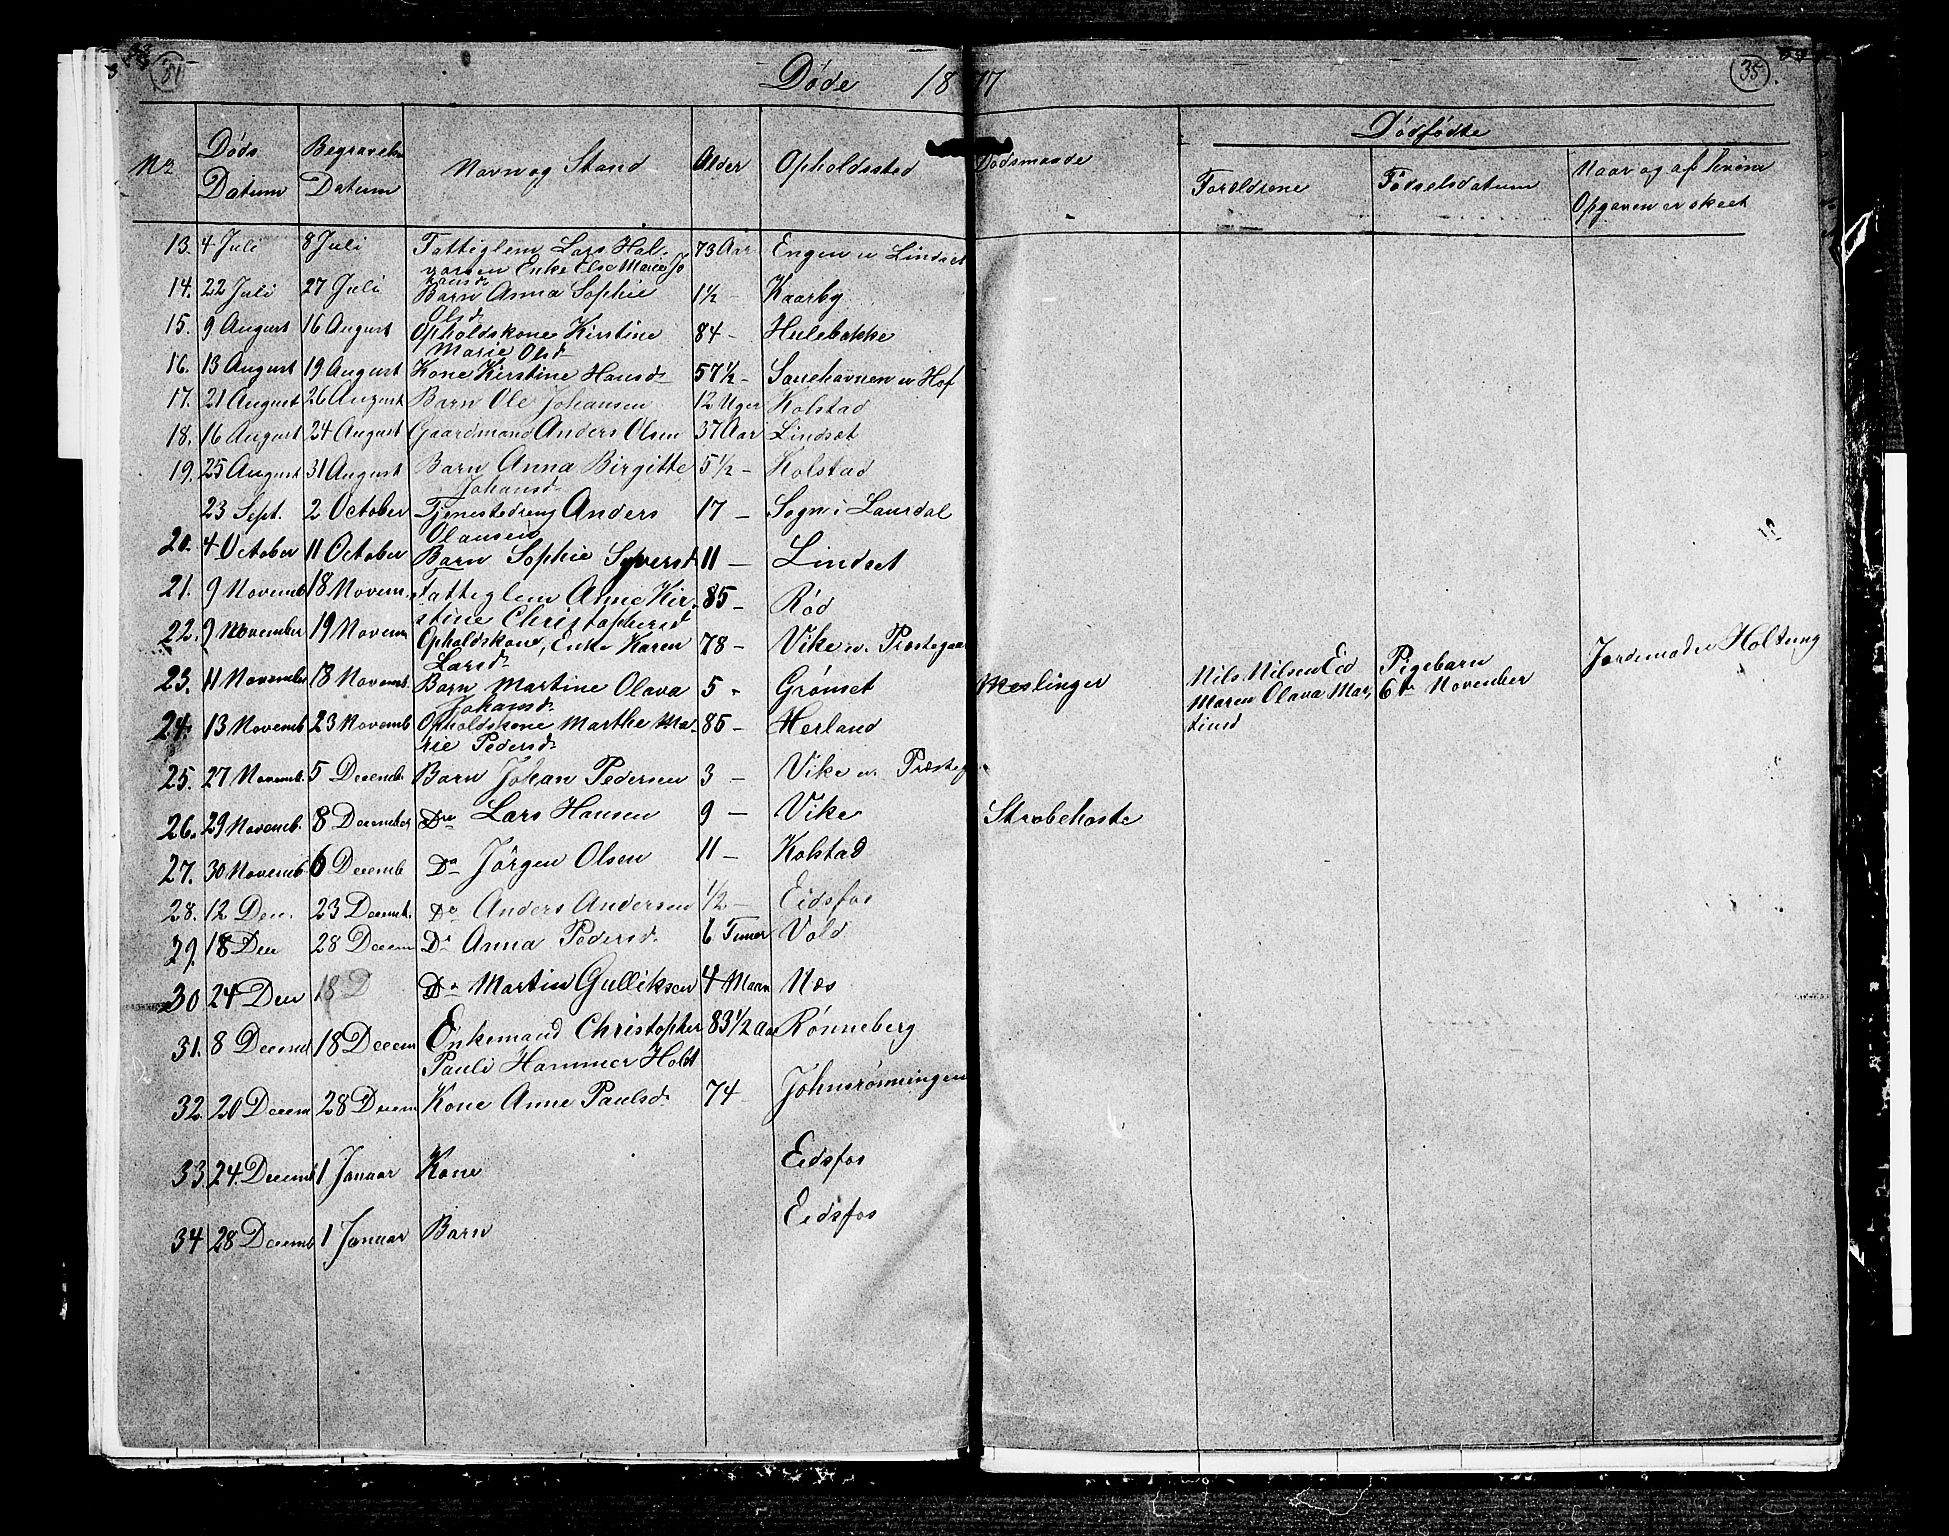 34 Døde 1877 35.
No Døds Datum Begravels Datum Navn og Stand Alder Opholdssted Dødsmaade Dødfødte
Forældrene Fødselsdatum Naar og af hvem Opgaven er skeet
13. 4 Juli 8 Juli Fattiglem Lars Hal- 73 Aar Engen u Lindset
varsen Enke Else Marie Jo
hansd
14. 22 Juli 27 Juli Barn Anna Sophie 1½ - Kaarby
Olsd
15. 9 August 16 August Opholdskone Kirstine 84 - Hulebakke
Marie Olsd
16. 13 August 19 August Kone Kirstine Hansd 57½ - Sauehavnen u Hof
17. 21 August 26 August Barn Ole Johansen 12 Uger Kolstad
18. 16 August 24 August Gaardmand Anders Olsen 37 Aar Lindset
19. 25 August 31 August Barn Anna Birgitte 5½ - Kolstad
Johansd
23 Sept. 2 October Tjenestedreng Anders 17 - Sogn i Laurdal
Olausen
20. 4 October 11 October Barn Sophie Syversd 11 - Lindset
21. 9 Novemb 18 Novem. Fattiglem Anne Kir- 85 - Rød
stine Christophersd
22. 9 November 19 Novem Opholdskone, Enke Karen 78 - Vike u. Præstegaa
Larsd
23. 11 November 18 Novemb. Barn Martine Olava 5 - Grønset Meslinger Nils Nilsen Eid Pigebarn Jordemoder Holtung
Johansd Maren Olava Mar, 6te November
tinsd
24. 13 Novemb 23 Novemb Opholdskone Marthe Ma- 85 - Herland
rie Pedersd
25. 27 Novemb. 5 Decemb. Barn Johan Pedersen 3 - Vike u. Præsteg
26. 29 Novemb. 8 December Do Lars Hansen 9 - Vike Strubehoste
27. 30 Novemb 6 Decemb Do Jörgen Olsen 11 - Kolstad
28. 12 Dec. 23 Decemb. Do Anders Andersen ½ - Eidsfos
29. 18 Dec 28 Decem Do Anna Pedersd. 6 Timer Vold
30 24 Dec 18 D Do Martin Gulliksen 4 Maan Næs
31. 8 Decemb 18 Decem Enkemand Christopher 83½ Aar Rönneberg
Pauli Hammer Holst
32 20 Decem 28 Decem Kone Anne Paulsd. 74 - Johnsrønningen
33. 24. Decemb 1 Januar Kone Eidsfos
34 28 Decemb 1 Januar Barn Eidsfos